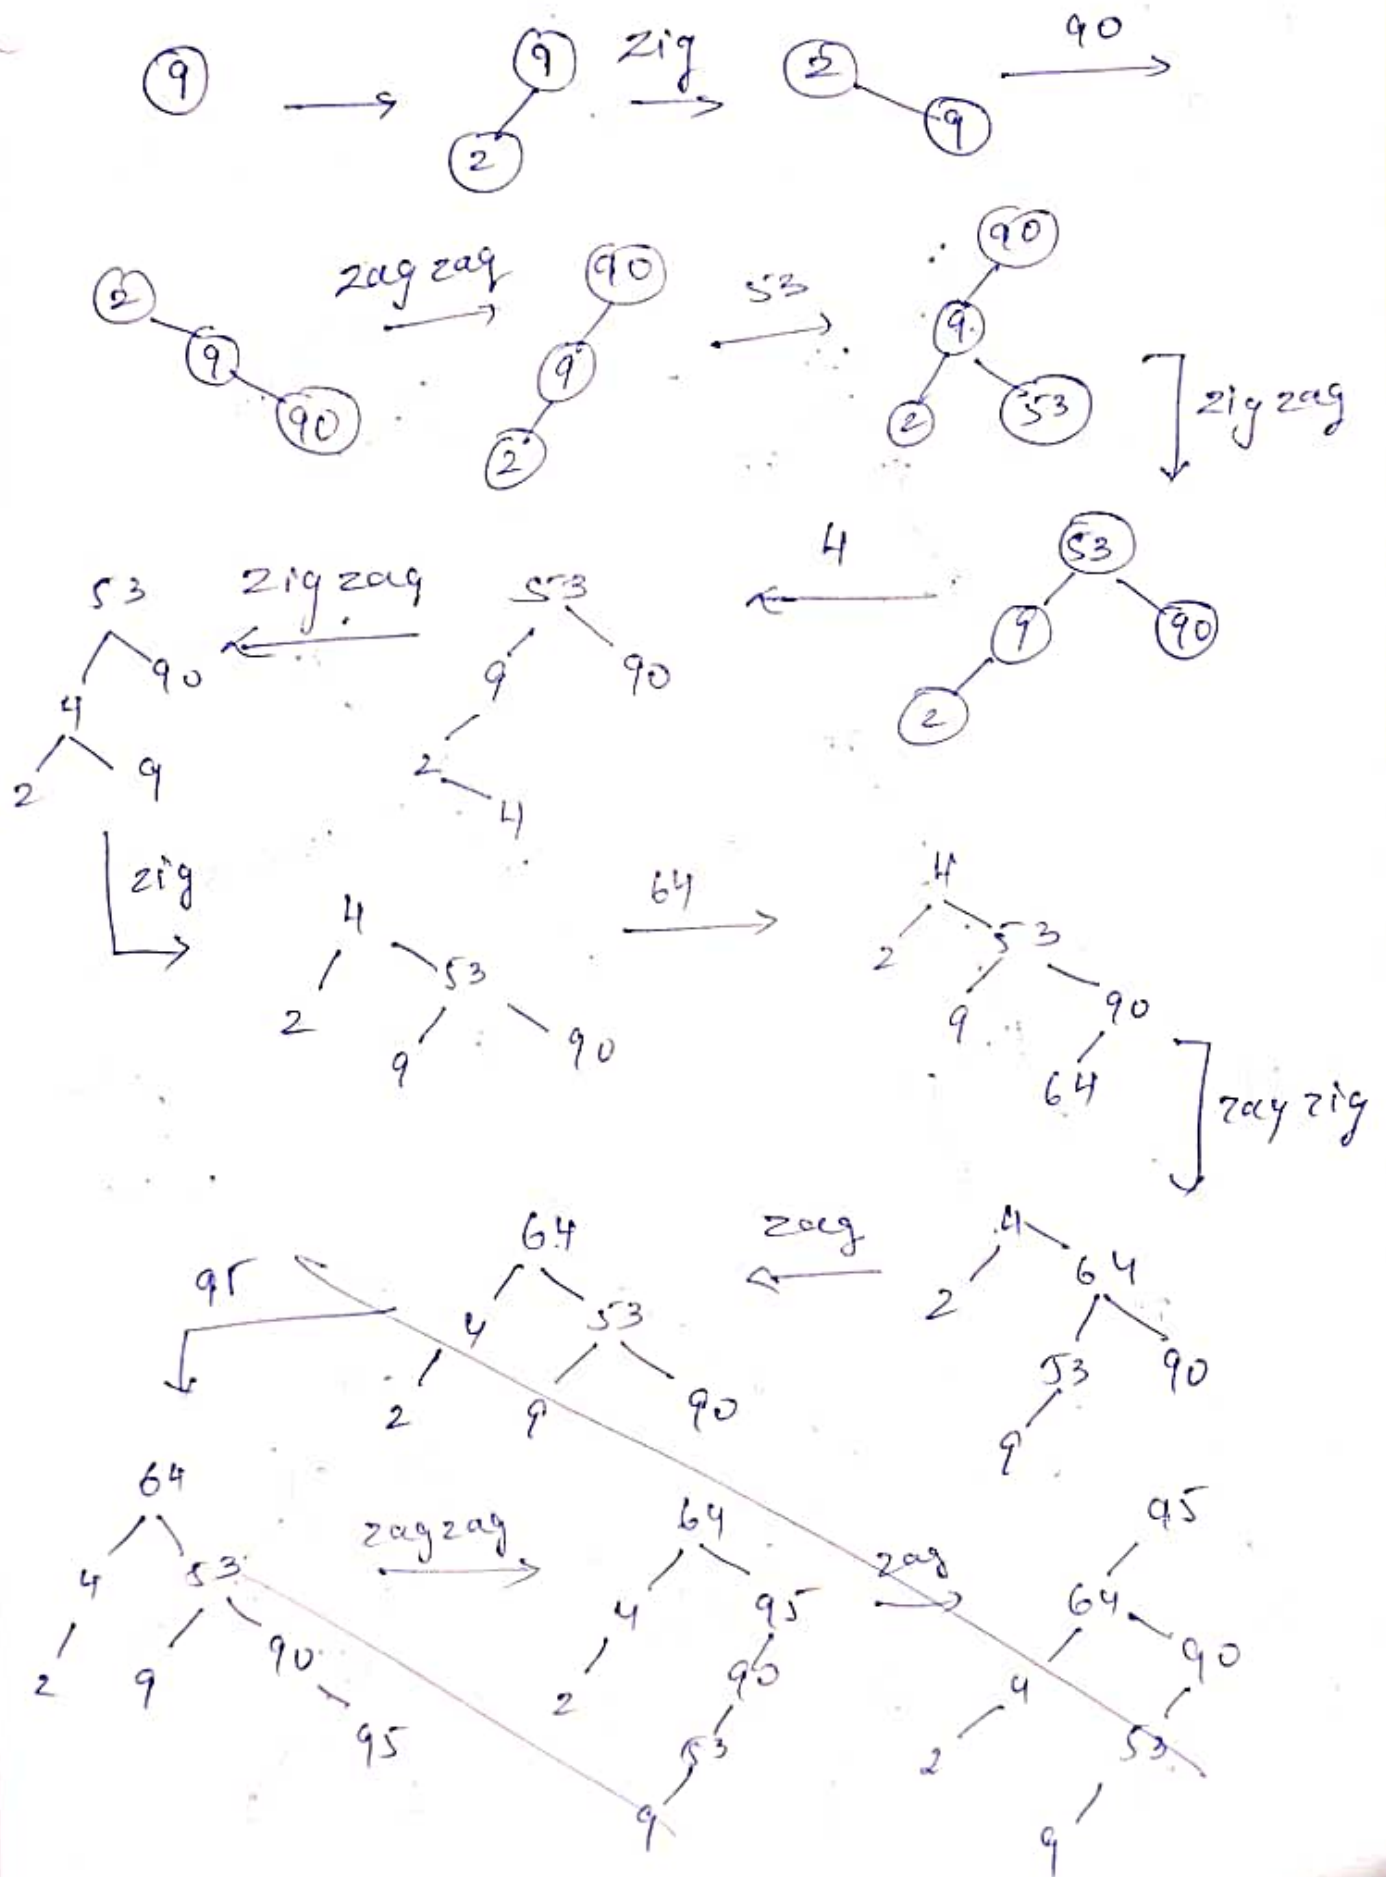 9
9
2
zig
2
9
90
2
9
90
zag zag
90
9
2
53
90
9
2
53
zig zag
53
9
90
2
4
53
9
90
2
4
zig zag
53
90
4
2
9
zig
4
2
53
9
90
64
4
2
53
9
90
64
zag zig
4
2
64
53
90
9
zag
64
4
53
2
9
90
95
64
4
53
2
9
90
95
zag zag
64
4
95
2
90
53
9
zag
95
64
4
90
2
53
9